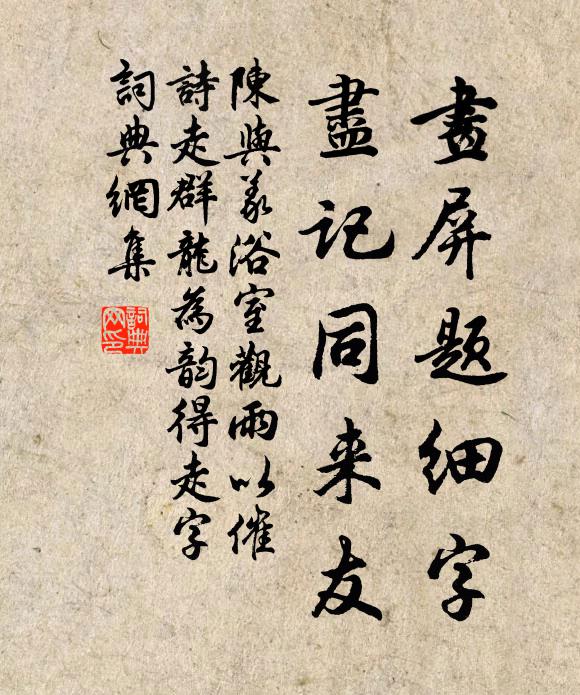 畫屏題細字
盡記同来友
陳與義浴室觀雨以催
詩走群龍為韵得走字
詞典網集
詞典網印